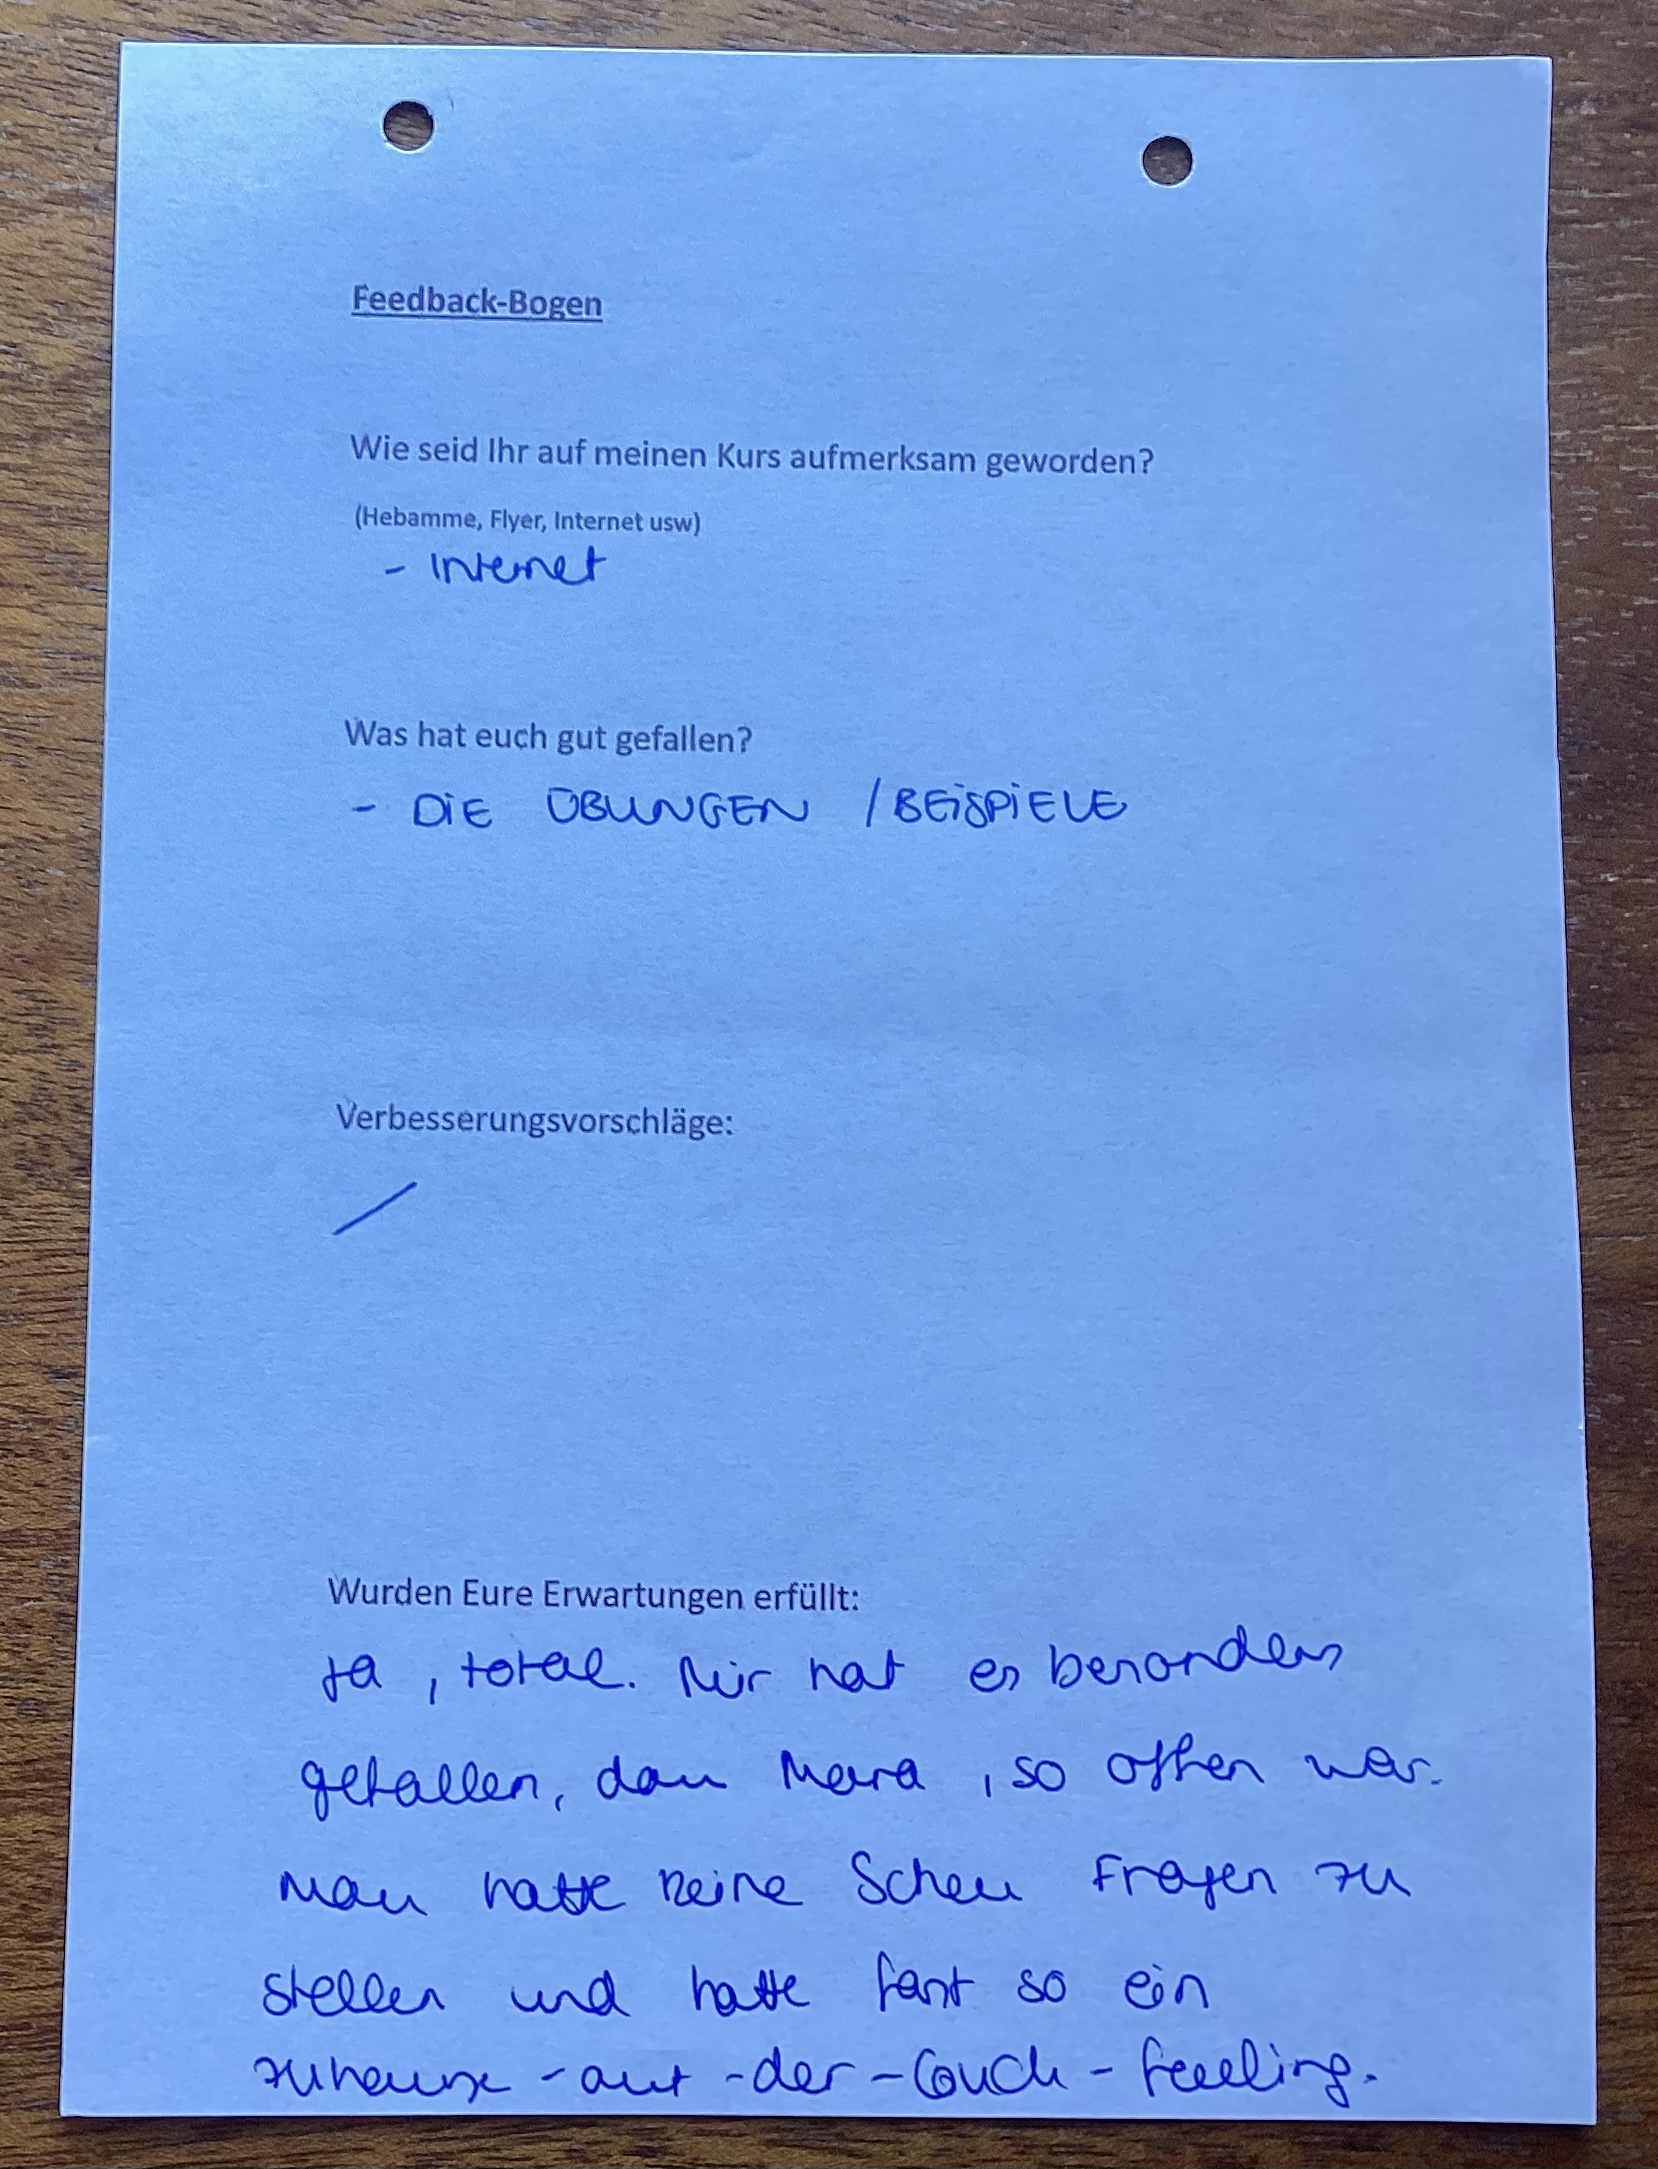 Feedback-Bogen
Wie seid Ihr auf meinen Kurs aufmerksam geworden?
(Hebamme, Flyer, Internet usw)
- Internet
Was hat euch gut gefallen?
- DiE ÜBUNGEN / BEiSPiELE
Verbesserungsvorschläge:
/
Wurden Eure Erwartungen erfüllt:
Ja, total. Mir hat es besonders
gefallen, dass Mara, so offen war.
Man hatte keine Scheu Fragen zu
stellen und hatte fast so ein
zuhause-auf-der-Couch-feeling.